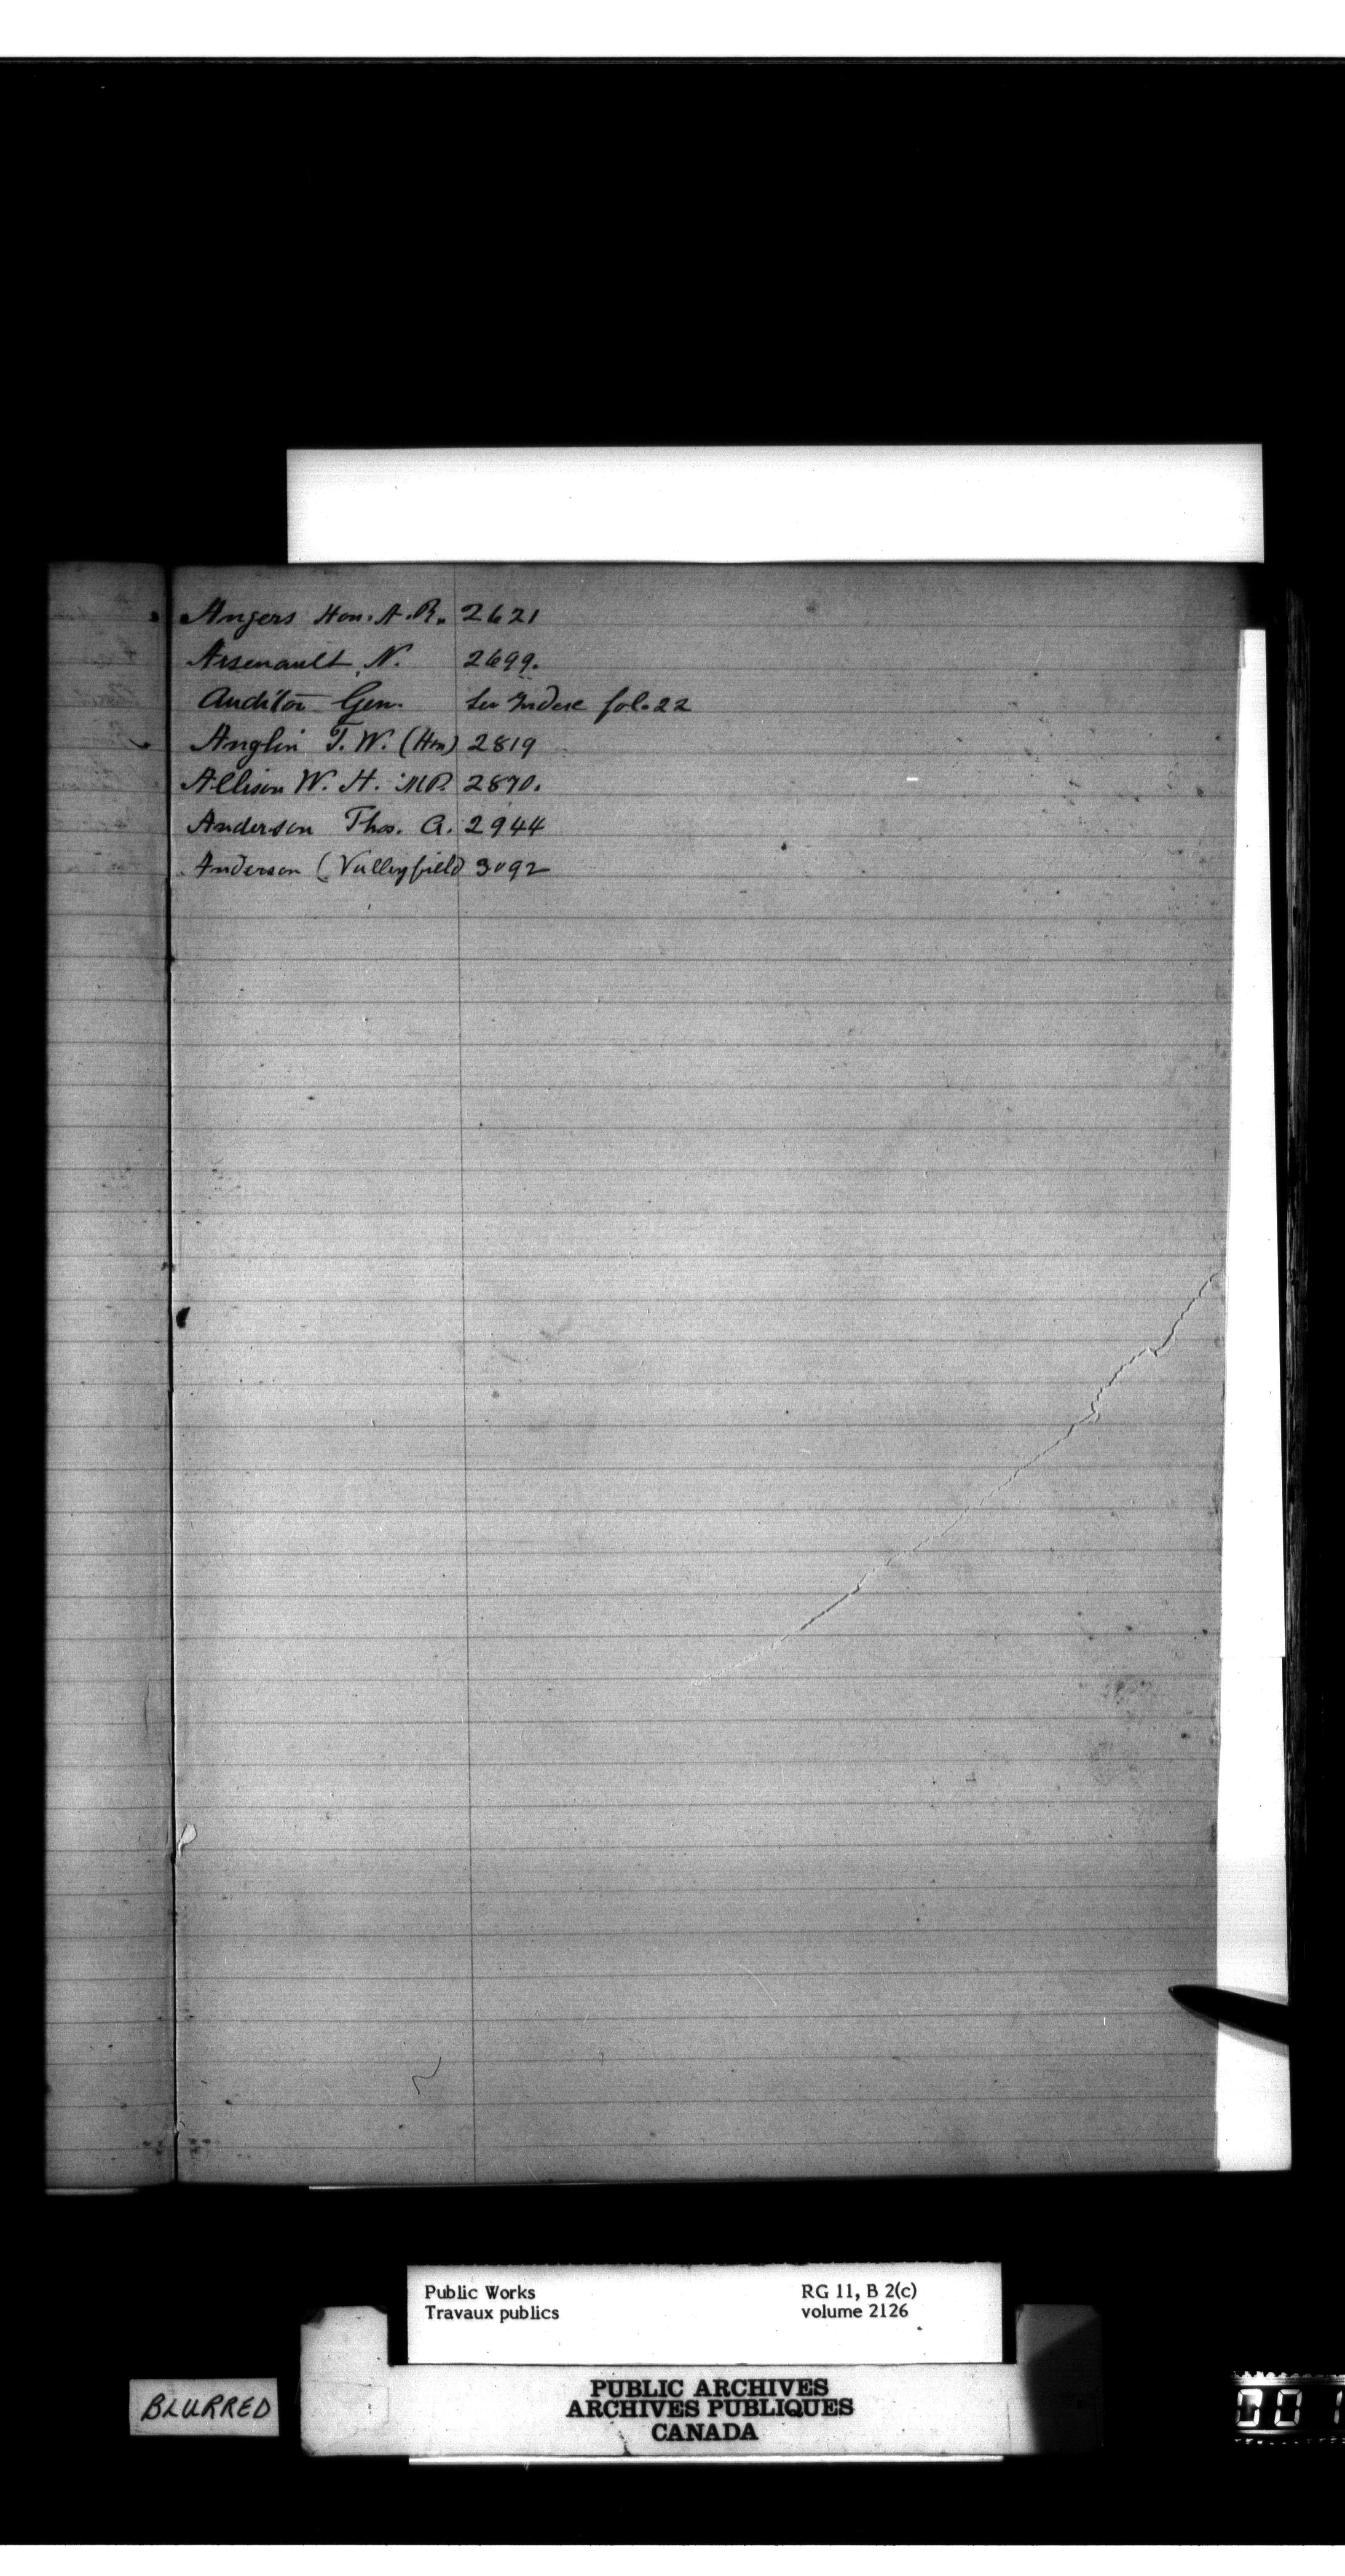 Angers Hon. A. R. 2621
Arsenault N. 2699.
Auditor Gen. See Index fol. 22
Anglin T. W. (Hon) 2819
Allison W. H. M.P. 2870.
Anderson Thos. A. 2944
Anderson (Valleyfield) 3092
Public Works RG 11, B 2(c)
Travaux publics volume 2126
PUBLIC ARCHIVES
ARCHIVES PUBLIQUES
CANADA
BLURRED
001